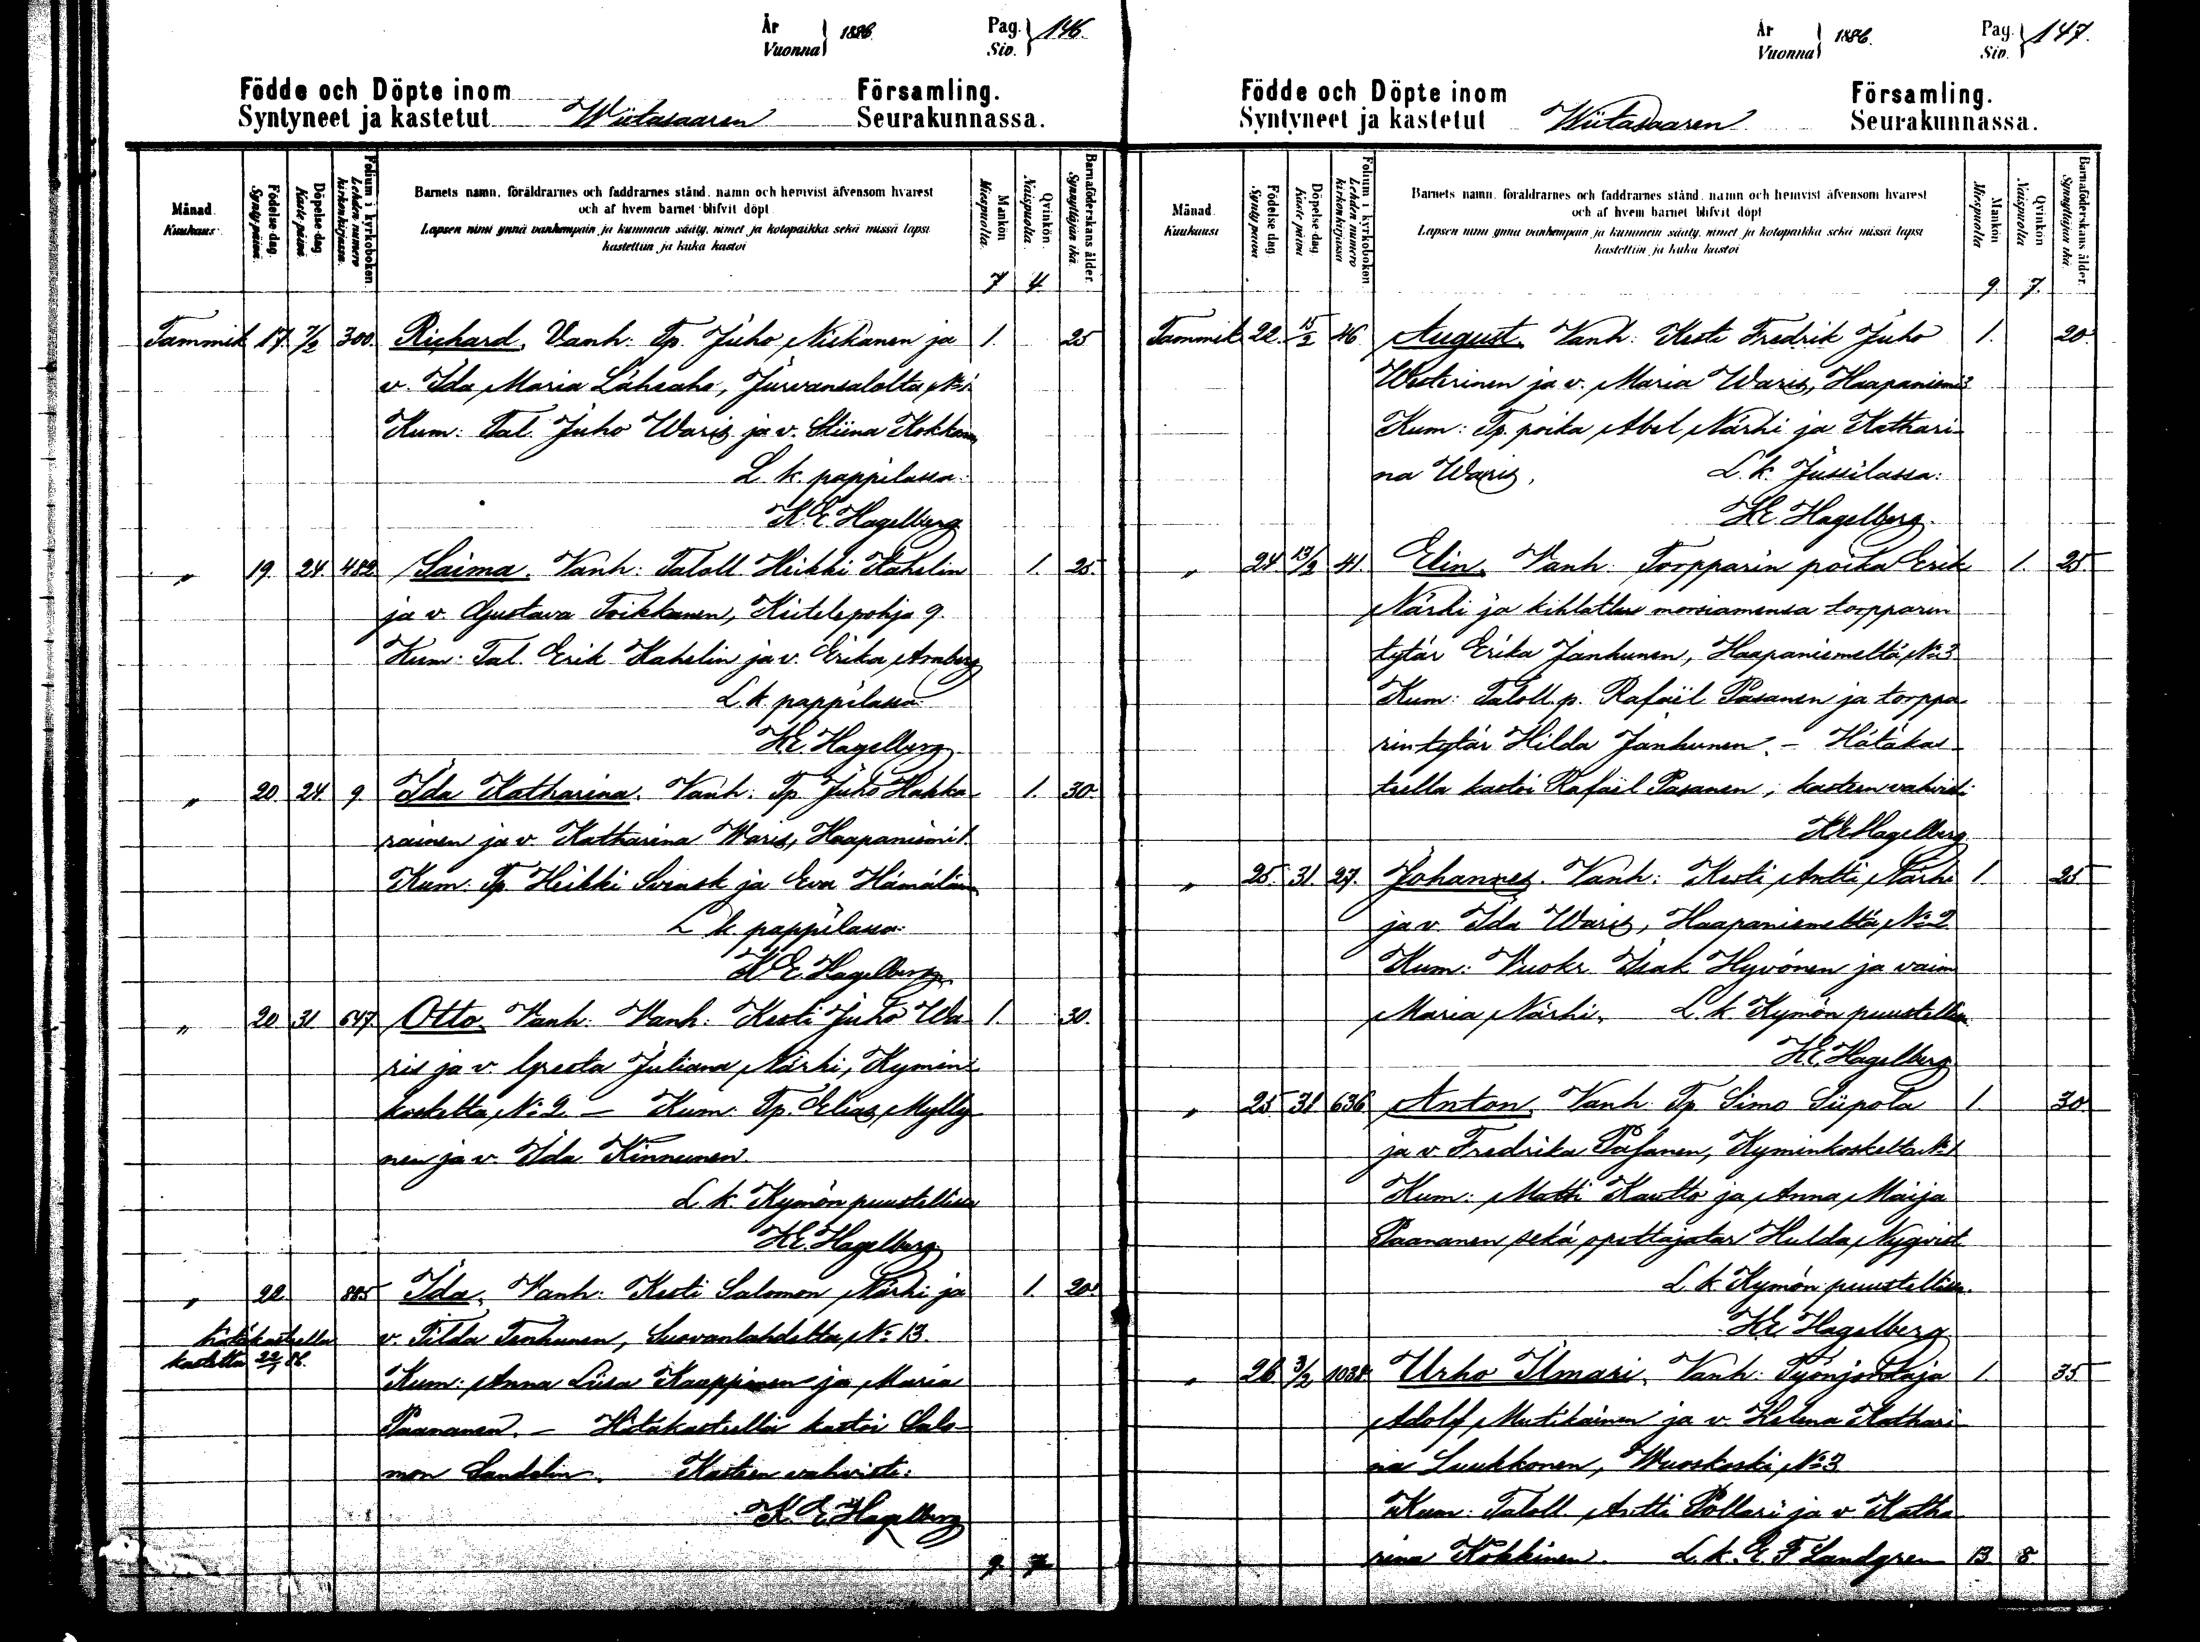 År Vuonna } 1886. Pag. Siv. } 146.
Födde och Döpte inom Församling.
Syntyneet ja kastetut Wiitasaaren Seurakunnassa.
Månad Kuukausi
Födelse dag Synty päivä
Döpelse dag Kaste päivä
Folium i kyrkoboken Lehden numero kirkonkirjassa
Barnets namn, föräldrarnes och faddrarnes stånd, namn och hemvist äfvensom hvarest
och af hvem barnet blifvit döpt
Lapsen nimi ynnä vanhempain ja kummein sääty, nimet ja kotopaikka sekä missä lapsi
kastettiin ja kuka kastoi
Mankön Miespuolta
Qvinkön Naispuolta
Barnaföderskans ålder Synnyttäjän ikä
7 4
Tammik 17. 7/2 300. Richard. Vanh. Tp. Juho Niskanen ja 1. 25
v. Ida Maria Läheaho, Jurvansalolta No 1
Kum: Tal. Juho Waris ja v. Stiina Kokkonen
L. k. pappilassa:
K. E. Hagelberg
" 19. 24 482 Saima. Vanh: Taloll Heikki Kahelin 1. 25.
ja v. Gustava Toikkanen, Keitelepohja 9.
Kum: Tal. Erik Kahelin ja v. Erika Arnberg
L. k. pappilassa
K E. Hagelberg
" 20 24. 9 Ida Katharina. Vanh: Tp. Juho Hakka- 1. 30
rainen ja v. Katharina Waris, Haapaniemi 1.
Kum: Tp. Heikki Svensk ja Eva Hämäläinen
L k pappilassa:
K. E. Hagelberg
" 20 31 647 Otto. Vanh: Vanh: Kesti Juho Wa 1. 30.
ris ja v. Greeta Juliana Närhi, Kymön
koskelta No 2 — Kum: Tp. Elias Mylly
nen ja v. Ida Kinnunen.
L. k. Kymön puustellissa
K E. Hagelberg
" 22 885 Ida. Vanh: Kesti Salomon Närhi ja 1. 20
Hätäkasteella v. Tilda Tenhunen, Suovanlahdelta No 13.
kastettu 22/1 86.
Kum: Anna Liisa Kauppinen ja Maria
Paananen. — Hätäkasteella kastoi Salo-
mon Sandelin. Kasteen vahvisti:
K. E. Hagelberg
9 7
År Vuonna } 1886. Pag. Siv. } 147.
Födde och Döpte inom Församling.
Syntyneet ja kastetut Wiitasaaren Seurakunnassa.
Månad Kuukausi
Födelse dag Synty päivä
Döpelse dag Kaste päivä
Folium i kyrkoboken Lehden numero kirkonkirjassa
Barnets namn, föräldrarnes och faddrarnes stånd, namn och hemvist äfvensom hvarest
och af hvem barnet blifvit döpt
Lapsen nimi ynnä vanhempain ja kummein sääty, nimet ja kotopaikka sekä missä lapsi
kastettiin ja kuka kastoi
Mankön Miespuolta
Qvinkön Naispuolta
Barnaföderskans ålder Synnyttäjän ikä
9. 7.
Tammik 22. 15/2 46 August. Vanh: Kesti Fredrik Juho 1. 20
Westerinen ja v. Maria Waris, Haapaniemi 3
Kum: Tp. poika Abel Närhi ja Kathari-
na Waris. L. k. Jussilassa:
K E. Hagelberg.
" 24 13/2 41. Elin. Vanh: Torpparin poika Erik 1. 25
Närhi ja kihlattu morsiamensa torpparin
tytär Erika Jankunen, Haapaniemeltä No 3
Kum: Taloll. p. Rafaël Pasanen ja torppa-
rin tytär Hilda Jankunen. — Hätäkas-
teella kastoi Rafaël Pasanen; kasteen vahvisti
K E Hagelberg
" 25. 31. 27. Johannes. Vanh: Kesti Antti Närhi 1. 25
ja v. Ida Waris, Haapaniemeltä No 2
Kum: Vuokr Isak Hyvönen ja vaim
Maria Närhi. L. k. Kymön puustellissa
K E. Hagelberg
" 25 31 636 Anton. Vanh: Tp Simo Siipola 1. 30
ja v. Fredrika Pasanen, Kyminkoskelta No 1
Kum: Matti Kautto ja Anna Maija
Paananen sekä opettajatar Hulda Nyqvist
L. k. Kymön puustellissa.
K E. Hagelberg
" 26 3/2 1038 Urho Ilmari. Vanh: Työnjohtaja 1. 35
Adolf Mutikainen ja v. Helena Kathari-
na Luukkonen, Wuoskoski No 3
Kum: Taloll. Antti Pollari ja v. Katha
rina Kokkinen. L. k. E. F Landgren 13. 8